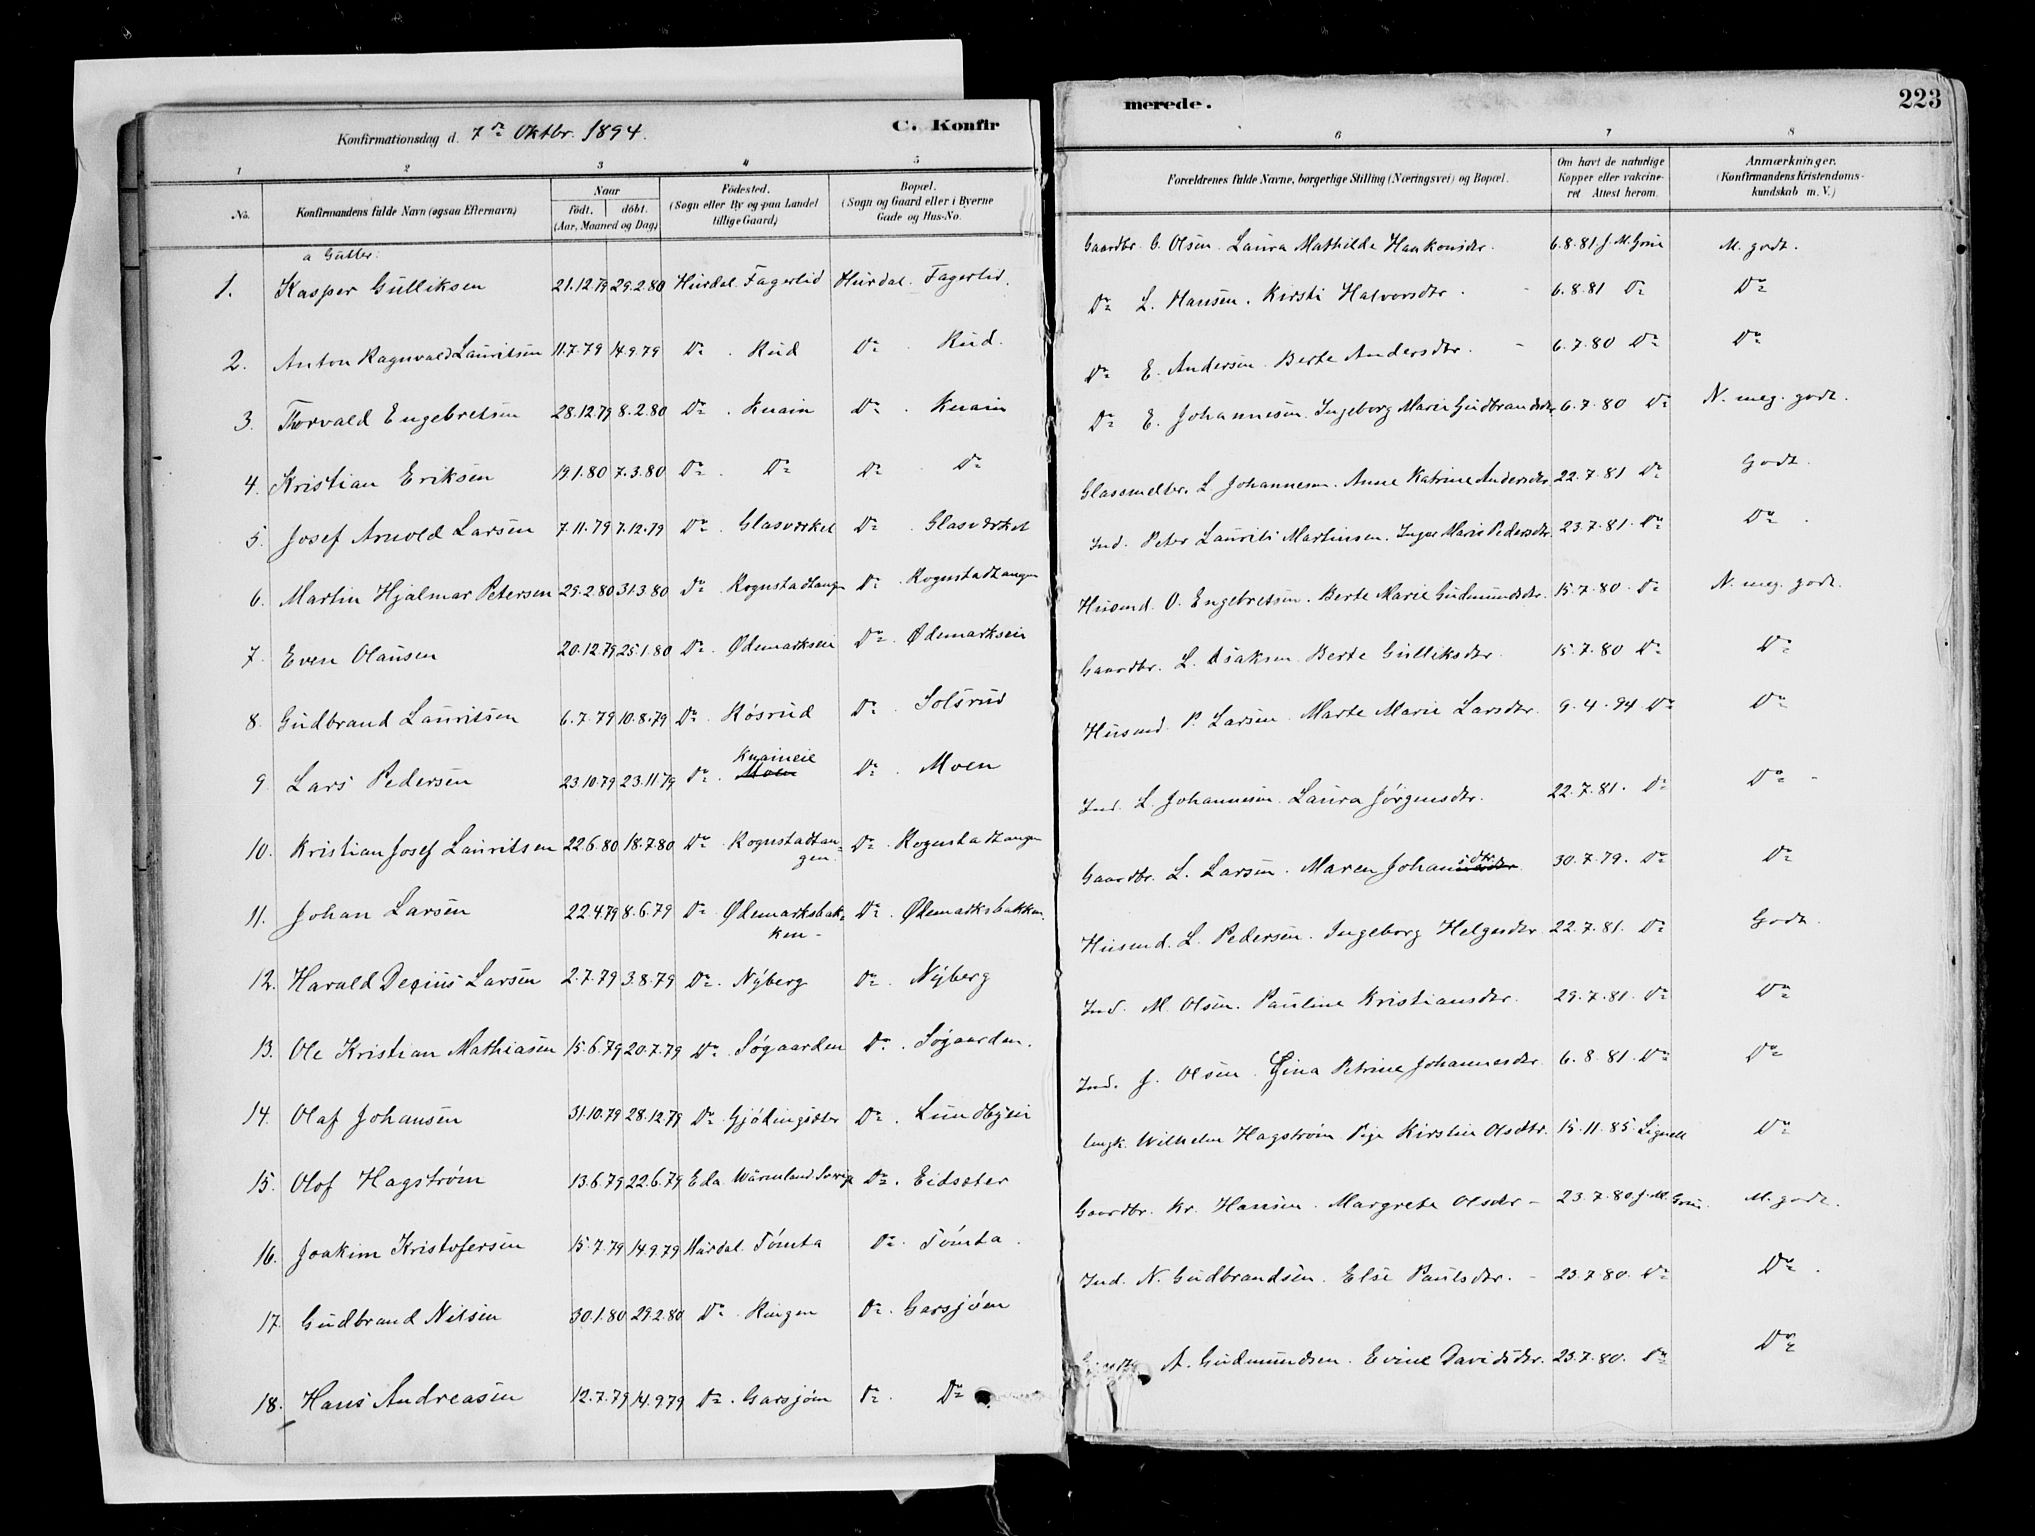 Konfirmationsdag d. 7de Oktbr. 1894.
C. Konfir
merede.
223
1 2 3 4 5 6 7 8
No.
Konfirmandens fulde Navn (ogsaa Efternavn)
Naar
födt. döbt.
(Aar, Maaned og Dag)
Födested.
(Sogn eller By og paa Landet
tillige Gaard)
Bopæl.
(Sogn og Gaard eller i Byerne
Gade og Hus-No.
Forældrenes fulde Navne, borgerlige Stilling (Næringsvei) og Bopæl.
Om havt de naturlige
Kopper eller vakcine-
ret Attest herom.
Anmærkninger.
(Konfirmandens Kristendoms-
kundskab m. V.)
a Gutter:
1. Kasper Gulliksen 21.12.79 29.2.80 Hurdal. Fagerlid Hurdal. Fagerlid. Gaardbr. G. Olsen. Laura Mathilde Haakonsdtr. 6.8.81 J. M. Grue M. godt.
2. Anton Ragnvald Lauritsen 11.7.79 14.9.79 Do. Rud Do. Rud. Do L. Hansen. Kirsti Halvorsdtr. 6.8.81 Do Do
3. Thorvald Engebretsen 28.12.79 8.2.80 Do. Knain Do. Knain Do E. Andersen. Berte Andersdtr. 6.7.80 Do Do
4. Kristian Eriksen 19.1.80 7.3.80 Do. Do Do. Do Do E. Johannesen. Ingeborg Marie Gudbrandsdtr. 6.7.80 Do N. meg. godt.
5. Josef Arnold Larsen 7.11.79 7.12.79 Do. Glasværket Do. Glasværket Glassmeltr. L. Johannesen. Anne Katrine Andersdtr. 22.7.81 Do Godt.
6. Martin Hjalmar Petersen 29.2.80 31.3.80 Do. Rognstadtangen Do. Rognstadtangen Ind. Peter Laurits Martinsen. Inger Marie Pedersdtr. 23.7.81. Do Do.
7. Even Olausen 20.12.79 25.1.80 Do. Ødemarkseie Do. Ødemarkseie Husmd. O. Engebretsen. Berte Marie Gudmundsdtr. 15.7.80. Do N. meg. godt.
8. Gudbrand Lauritsen 6.7.79 10.8.79 Do. Røsrud Do. Solsrud Gaardbr. L. Isaksen. Berte Gulliksdtr. 15.7.80 Do Do
9. Lars Pedersen 23.10.79 23.11.79 Do. Knaineie Moen Do. Moen Husmd. P. Larsen. Marte Marie Larsdtr. 9.4.94 Do Do
10. Kristian Josef Lauritsen 22.6.80 18.7.80 Do. Rognstadtan-
gen. Do. Rognstadtangen Ind. L. Johannesen. Laura Jørgensdtr. 22.7.81. Do Do
11. Johan Larsen 22.4.79 8.6.79 Do. Ødemarksbak-
ken. Do. Ødemarksbakken. Gaardbr. L. Larsen. Maren Johansdtr. 30.7.79. Do Do
12. Harald Larsen 2.7.79 3.8.79 Do. Nyberg Do. Nyberg Husmd. L. Pedersen. Ingeborg Helgesdtr. 22.7.81. Do Godt.
13. Ole Kristian Mathiasen 15.6.79 20.7.79 Do. Søgaarden Do. Søgaarden. Ind. M. Olsen. Pauline Kristiansdtr. 29.7.81. Do Do
14. Olaf Johansen 31.10.79 28.12.79 Do. Gjødingsæter Do. Lundbyeie Ind. J. Olsen. Gina Petrine Johannesdtr. 6.8.81. Do Do
15. Olof Hagstrøm 13.6.79 22.6.79 Eda Wärmland Sverige Do. Eidsæter Wilhelm Hagstrøm. Pige Kirstin Olsdtr. 15.11.85. Do
16. Joakim Kristofersen 15.7.79 14.9.79 Hurdal. Tømta Do. Tømta. Gaardbr. Kr. Hansen. Margrete Olsdtr. 23.7.80 J. M. Grue. M. godt.
17. Gudbrand Nilsen 30.1.80 29.2.80 Do. Ringen Do. Garsjøen Ind. N. Gudbrandsen. Else Paulsdtr. 23.7.80. Do Do.
18. Hans Andreasen 12.7.79 14.9.79 Do. Garsjøen Do. Do A. Gudmundsen. Evine Davidsdtr. 23.7.80. Do Do